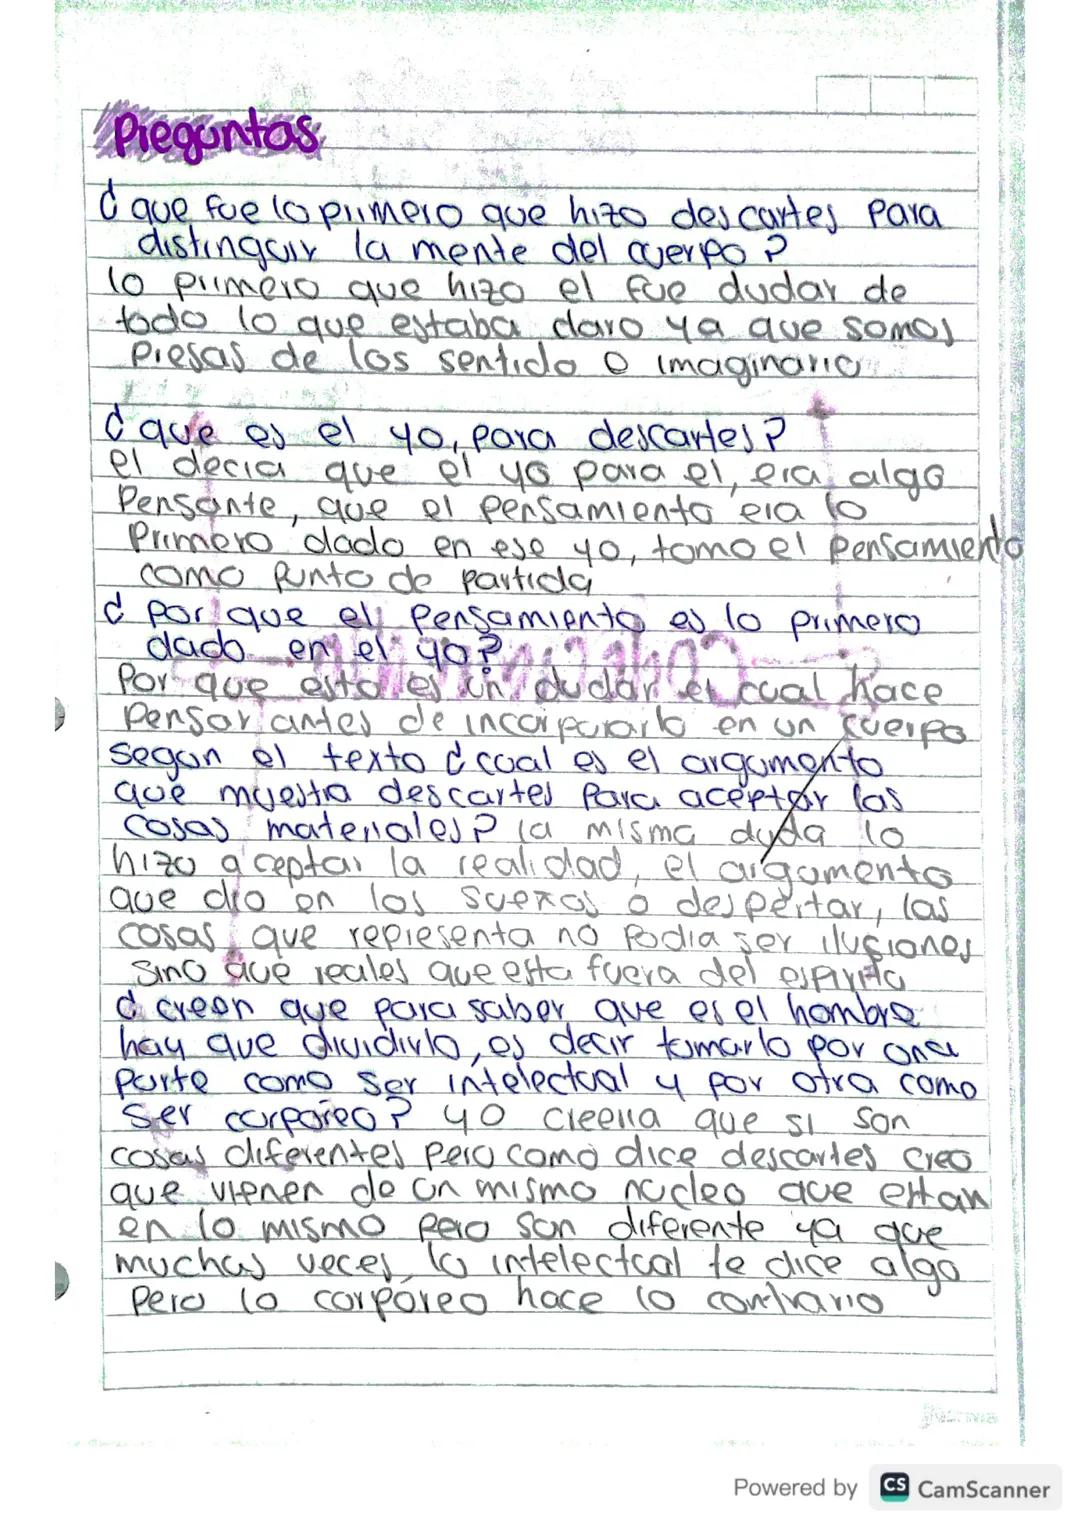 Preguntas
¿ que fue lo primero que hizo descartes para
distinguir la mente del cuerpo ?
lo primero que hizo el fue dudar de
todo lo que estaba claro ya que somos
presas de los sentido o imaginario
¿ que es el yo, para descartes ?
el decia que el yo para el, era algo
Pensante, que el pensamiento era lo
Primero dado en ese yo, tomo el pensamiento
como punto de partida
¿ por que el pensamiento es lo primero
dado en el yo ?
Por que esto es un dudar el cual hace
Pensar antes de incorporarlo en un cuerpo
segun el texto ¿ cual es el argumento
que muestra descartes para aceptar las
cosas materiales ? la misma duda lo
hizo aceptar la realidad, el argumento
que dio en los sueños o despertar, las
cosas que representa no podia ser ilusiones
sino que reales que esta fuera del espiritu
¿ creen que para saber que es el hombre
hay que dividirlo, es decir tomarlo por una
parte como ser intelectual y por otra como
ser corporeo ? yo creeria que si son
cosas diferentes pero como dice descartes creo
que vienen de un mismo nucleo que estan
en lo mismo pero son diferente ya que
muchas veces lo intelectual te dice algo
Pero lo corporeo hace lo contrario
Powered by CS CamScanner